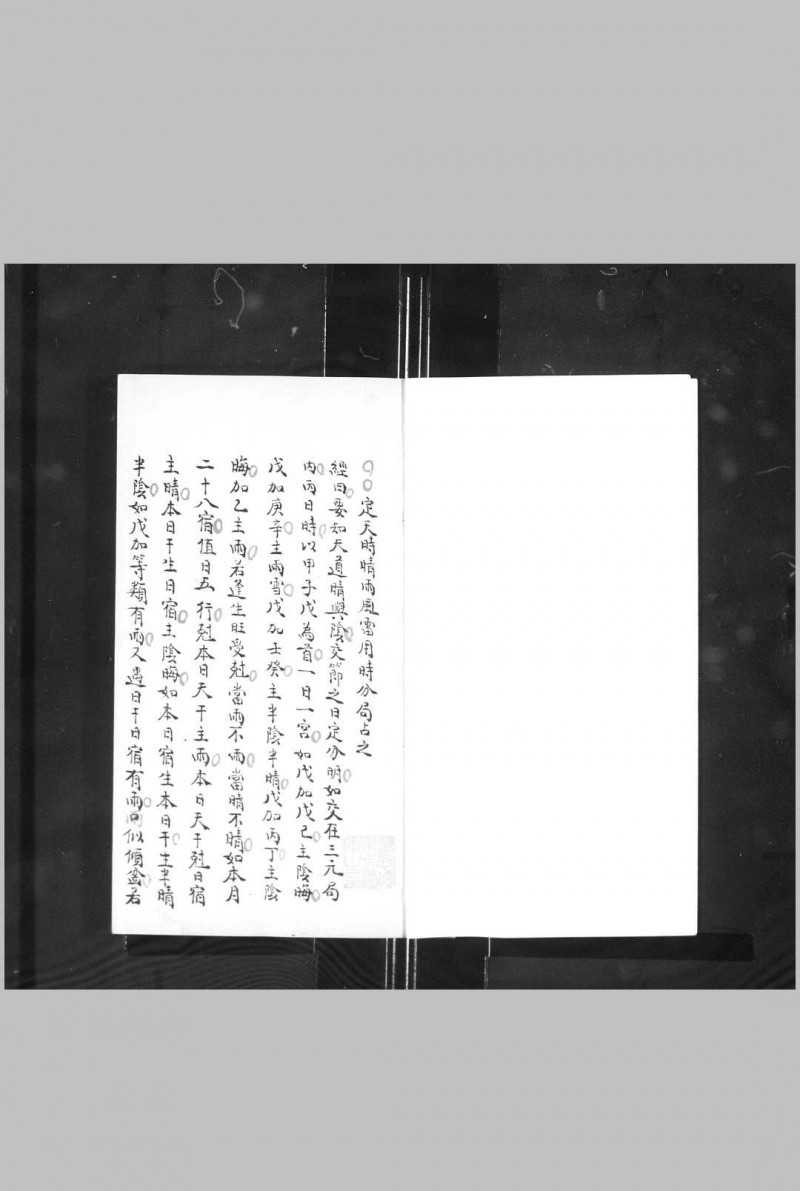 定天時晴雨風雷用時分局占之
經曰要知天道晴與陰交節之日定分明如交在三元局
内丙日時以甲子戊為首一日一宮如戊加戊己主陰晦
戊加庚辛主雨雪戊加壬癸主半陰半晴戊加丙丁主陰
晦加乙主雨若逢生旺受尅當雨不雨當晴不晴如本月
二十八宿值日五行尅本日天干主雨本日天干尅日宿
主晴本日干生日宿主陰晦如本日宿生本日干主半晴
半陰如戊加等類有雨又遇日干日宿有雨口似傾盆若